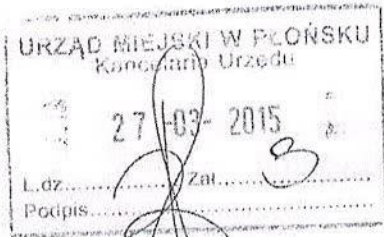 URZĄD MIEJSKI W PŁOŃSKU
Kancelaria Urzędu
27 -03- 2015
L.dz............ Zał. 3
Podpis............